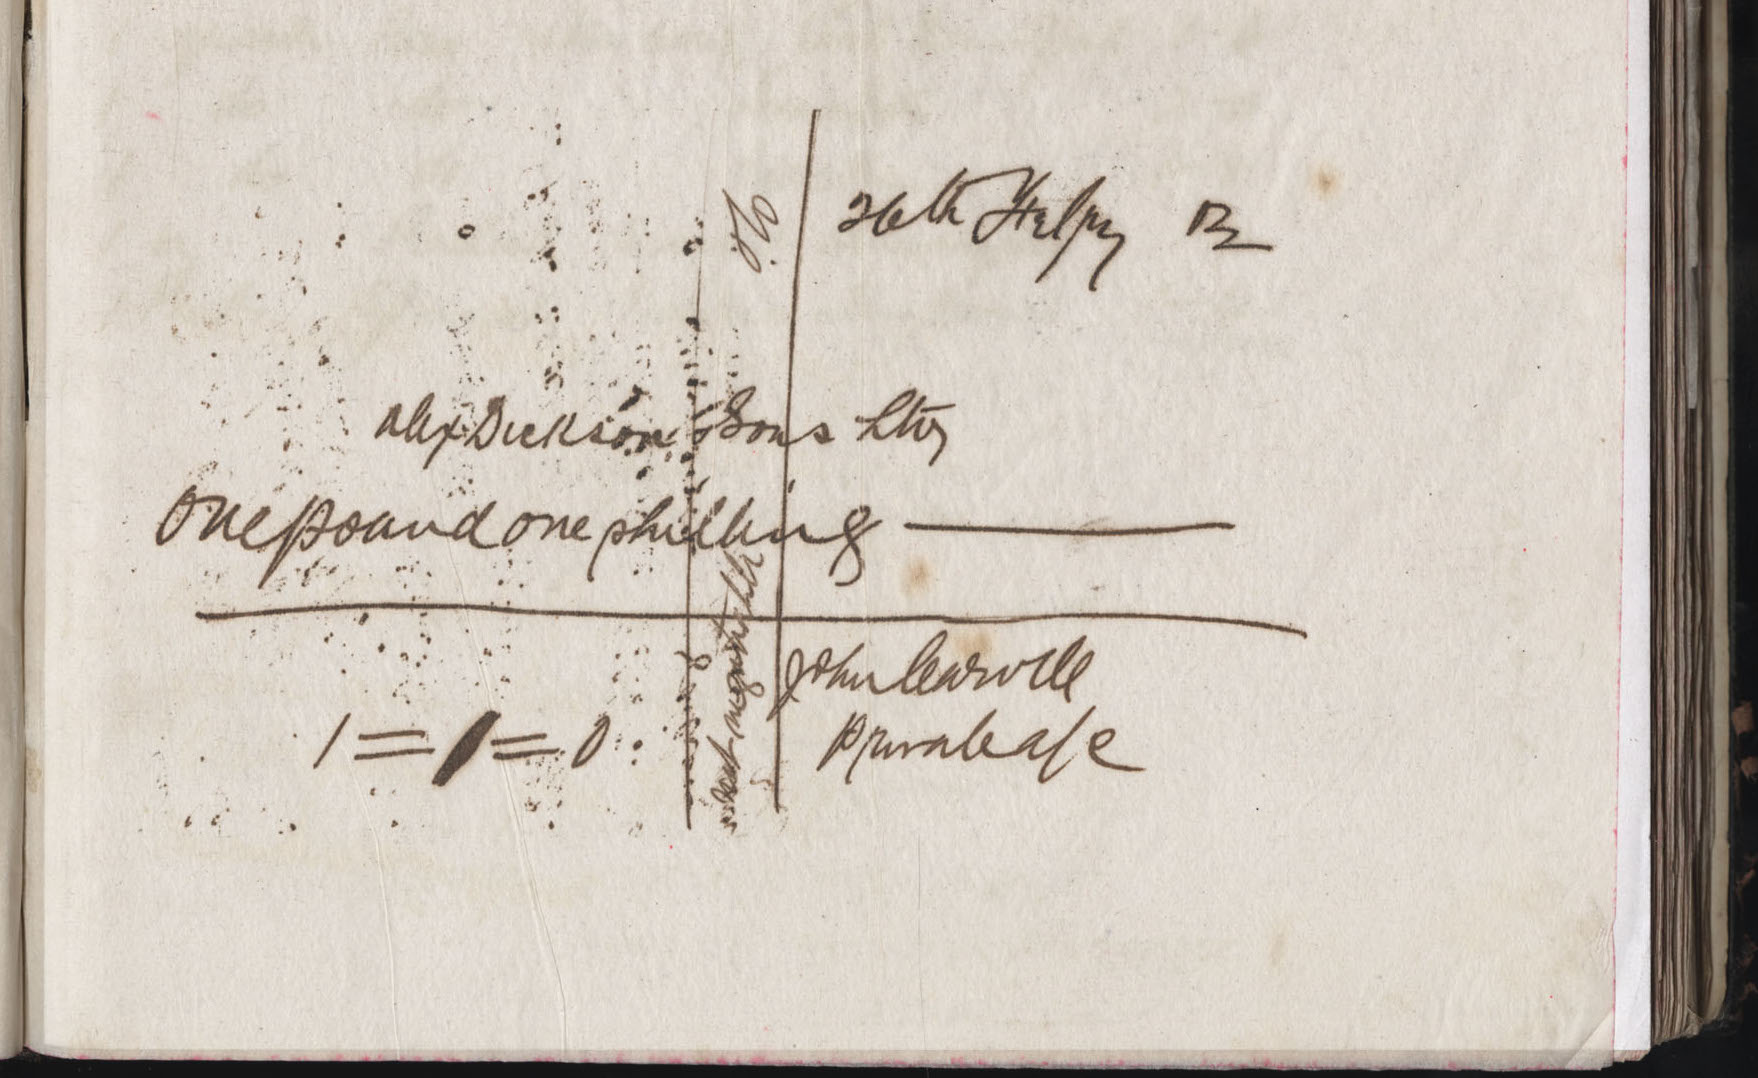 26th 12
& Co.
Alex Dickson & Sons Ltd
One pound one shilling
not negotiable
John
1 = 1 = 0
Private a/c